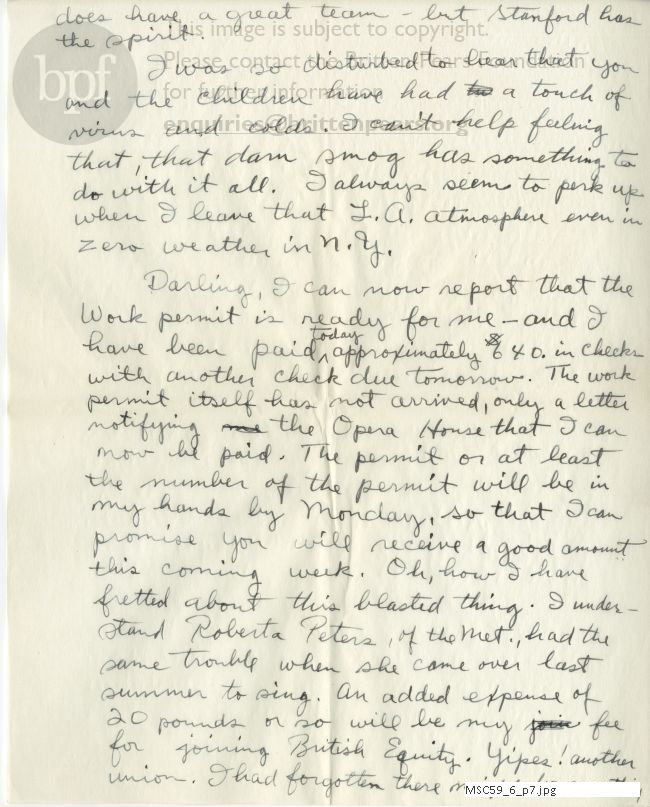 does have a great team - but Stanford has
the spirit.
This image is subject to copyright.
Please contact the Britten-Pears Foundation
for further information
enquiries@brittenpears.org
bpf
I was so disturbed to hear that you
and the children have had to a touch of
virus and colds. I can't help feeling
that, that darn smog has something to
do with it all. I always seem to perk up
when I leave that L.A. atmosphere even in
zero weather in N.Y.
Darling, I can now report that the
Work permit is ready for me - and I
have been paid, today approximately $640. in checks
with another check due tomorrow. The work
permit itself has not arrived, only a letter
notifying me the Opera House that I can
now be paid. The permit or at least
the number of the permit will be in
my hands by Monday, so that I can
promise you will receive a good amount
this coming week. Oh, how I have
fretted about this blasted thing. I under-
stand Roberta Peters, of the Met., had the
same trouble when she came over last
summer to sing. An added expense of
20 pounds or so will be my join fee
for joining British Equity. Yipes! another
union. I had forgotten there
MSC59_6_p7.jpg